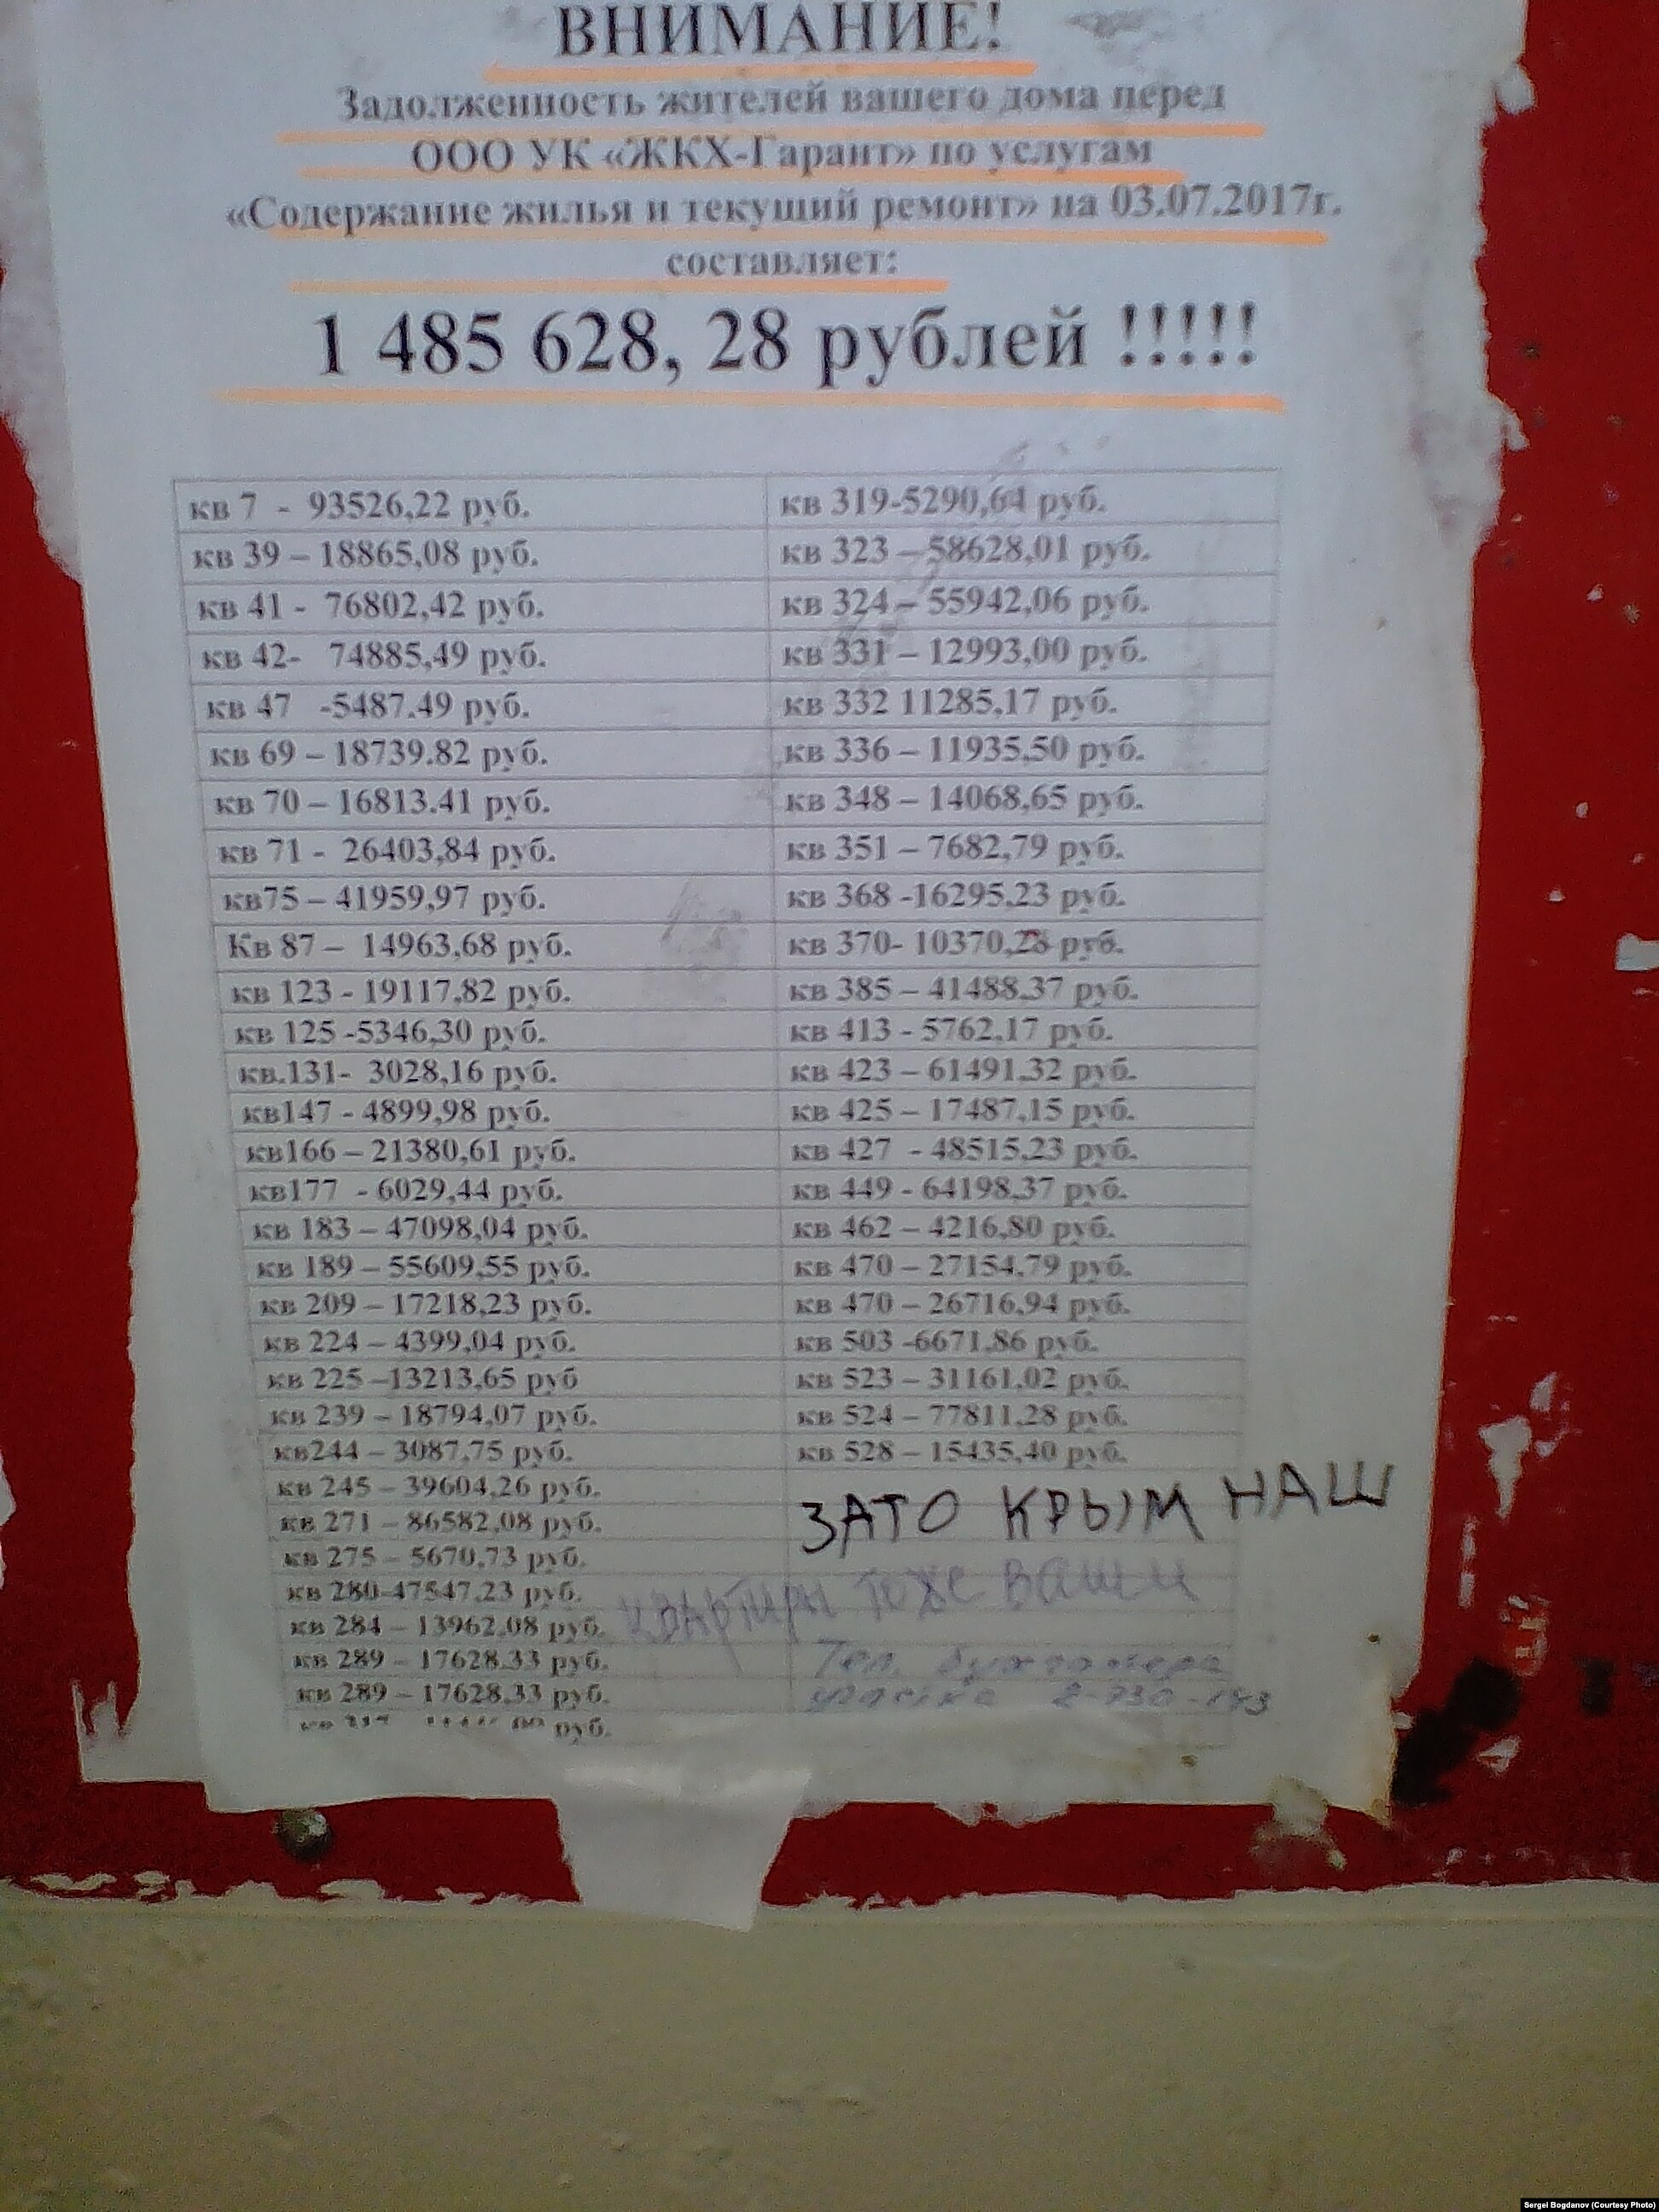 ВНИМАНИЕ!
Задолженность жителей вашего дома перед
ООО УК «ЖКХ-Гарант» по услугам
«Содержание жилья и текущий ремонт» на 03.07.2017г.
составляет:
1 485 628, 28 рублей !!!!!
кв 7 - 93526,22 руб.
кв 39 – 18865,08 руб.
кв 41 - 76802,42 руб.
кв 42- 74885,49 руб.
кв 47 -5487.49 руб.
кв 69 – 18739.82 руб.
кв 70 – 16813.41 руб.
кв 71 - 26403,84 руб.
кв75 – 41959,97 руб.
Кв 87 – 14963,68 руб.
кв 123 - 19117,82 руб.
кв 125 -5346,30 руб.
кв.131- 3028,16 руб.
кв147 - 4899,98 руб.
кв166 – 21380,61 руб.
кв177 - 6029,44 руб.
кв 183 – 47098,04 руб.
кв 189 – 55609,55 руб.
кв 209 – 17218,23 руб.
кв 224 – 4399,04 руб.
кв 225 –13213,65 руб
кв 239 – 18794,07 руб.
кв244 – 3087,75 руб.
кв 245 – 39604,26 руб.
кв 271 – 86582,08 руб.
кв 275 – 5670,73 руб.
кв 280-47547,23 руб.
кв 284 – 13962,08 руб.
кв 289 – 17628.33 руб.
кв 289 – 17628.33 руб.
руб.
кв 319-5290,64 руб.
кв 323 – 58628,01 руб.
кв 324 – 55942,06 руб.
кв 331 – 12993,00 руб.
кв 332 11285,17 руб.
кв 336 – 11935,50 руб.
кв 348 – 14068,65 руб.
кв 351 – 7682,79 руб.
кв 368 -16295,23 руб.
кв 370- 10370,28 руб.
кв 385 – 41488,37 руб.
кв 413 - 5762,17 руб.
кв 423 – 61491,32 руб.
кв 425 – 17487,15 руб.
кв 427 - 48515,23 руб.
кв 449 - 64198,37 руб.
кв 462 – 4216,80 руб.
кв 470 – 27154,79 руб.
кв 470 – 26716,94 руб.
кв 503 -6671,86 руб.
кв 523 – 31161,02 руб.
кв 524 – 77811,28 руб.
кв 528 – 15435,40 руб.
ЗАТО КРЫМ НАШ
квартиры тоже ваши
Тел. бухгалтера
участка 2-930-193
Sergei Bogdanov (Courtesy Photo)